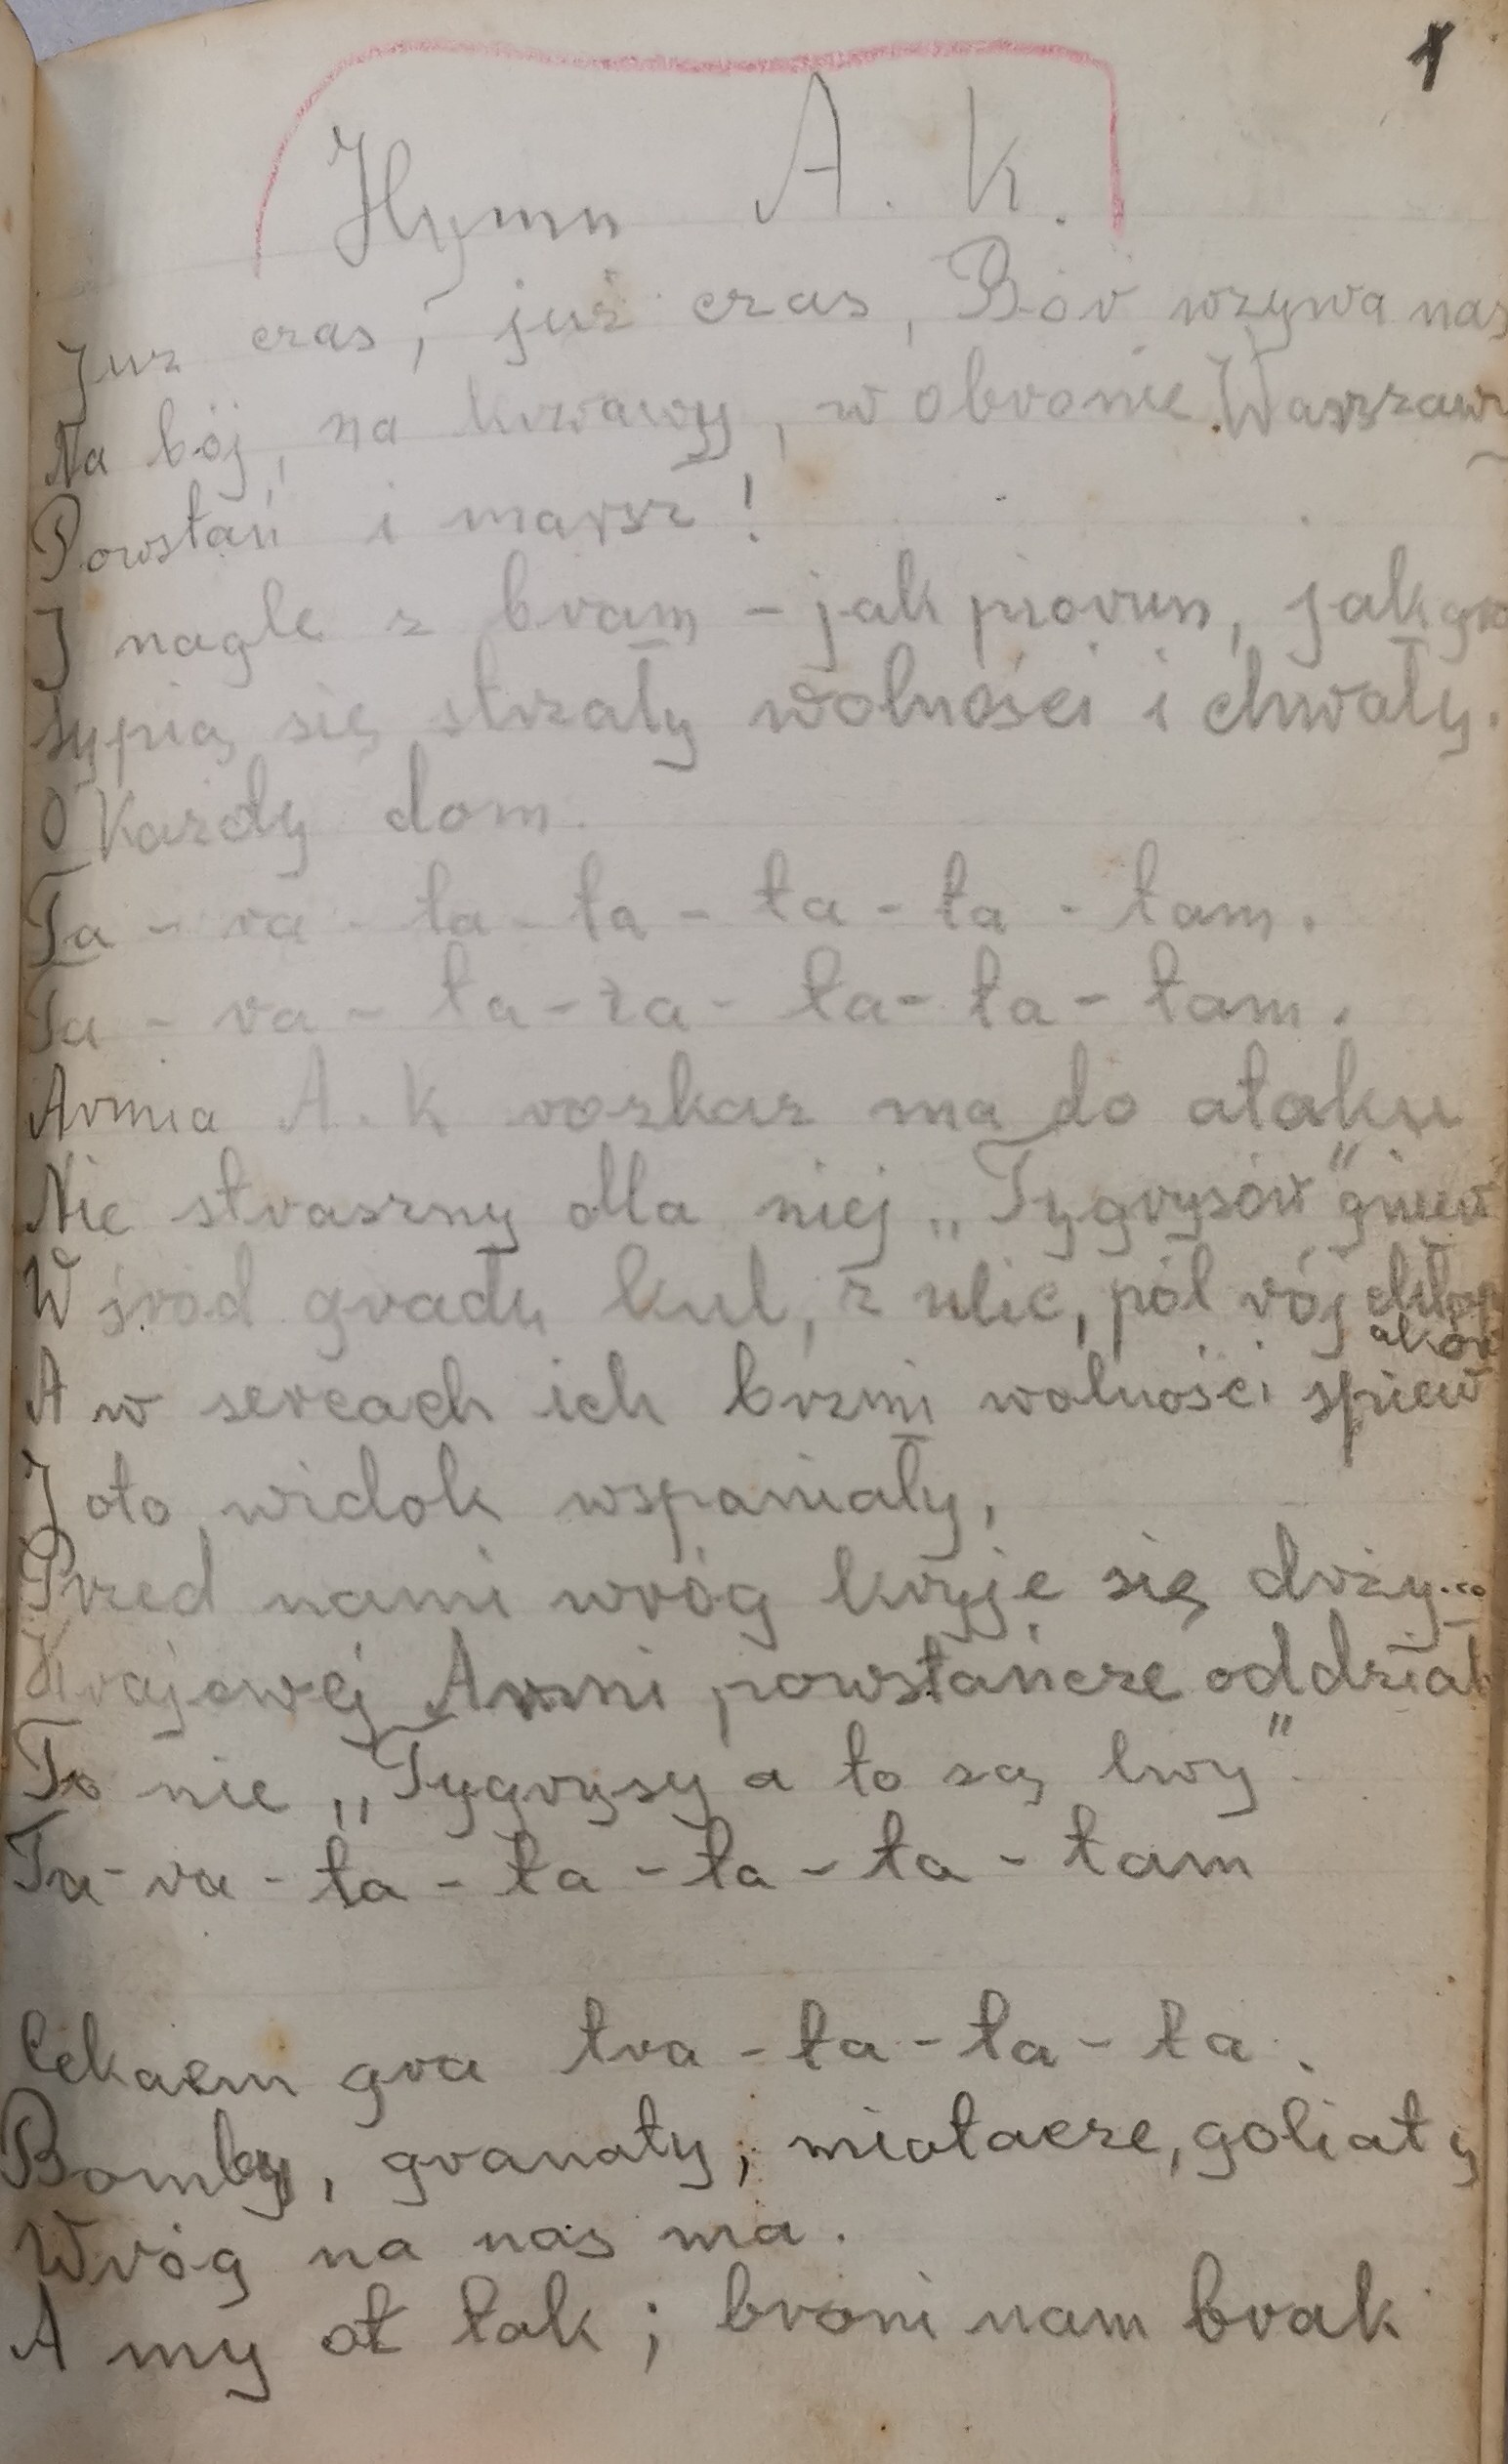 1
Hymn A. K.
Już czas, już czas, Bór wzywa nas
Na bój, na krwawy, w obronie Warszawy
Powstań i marsz!
I nagle z bram – jak piorun, jak
sypią się strzały wolności i chwały.
O każdy dom.
Ta - ra - ta - ta - ta - ta - tam.
Ta - ra - ta - ra - ta - ta - tam.
Armia A. K rozkaz ma do ataku
Nie straszny dla niej „Tygrysów" gniew
Wśród gradu kul, z ulic, pól rój chłop
aków
A w sercach ich brzmi wolności śpiew
I oto widok wspaniały,
Przed nami wróg kryje się drży...
Krajowej Armii powstańcze oddziały
To nie „Tygrysy a to są lwy"
Ta - ra - ta - ta - ta - ta - tam
Cekaem gra tra - ta - ta - ta.
Bomby, granaty, miotacze, goliaty
Wróg na nas ma.
A my ot tak; broni nam brak